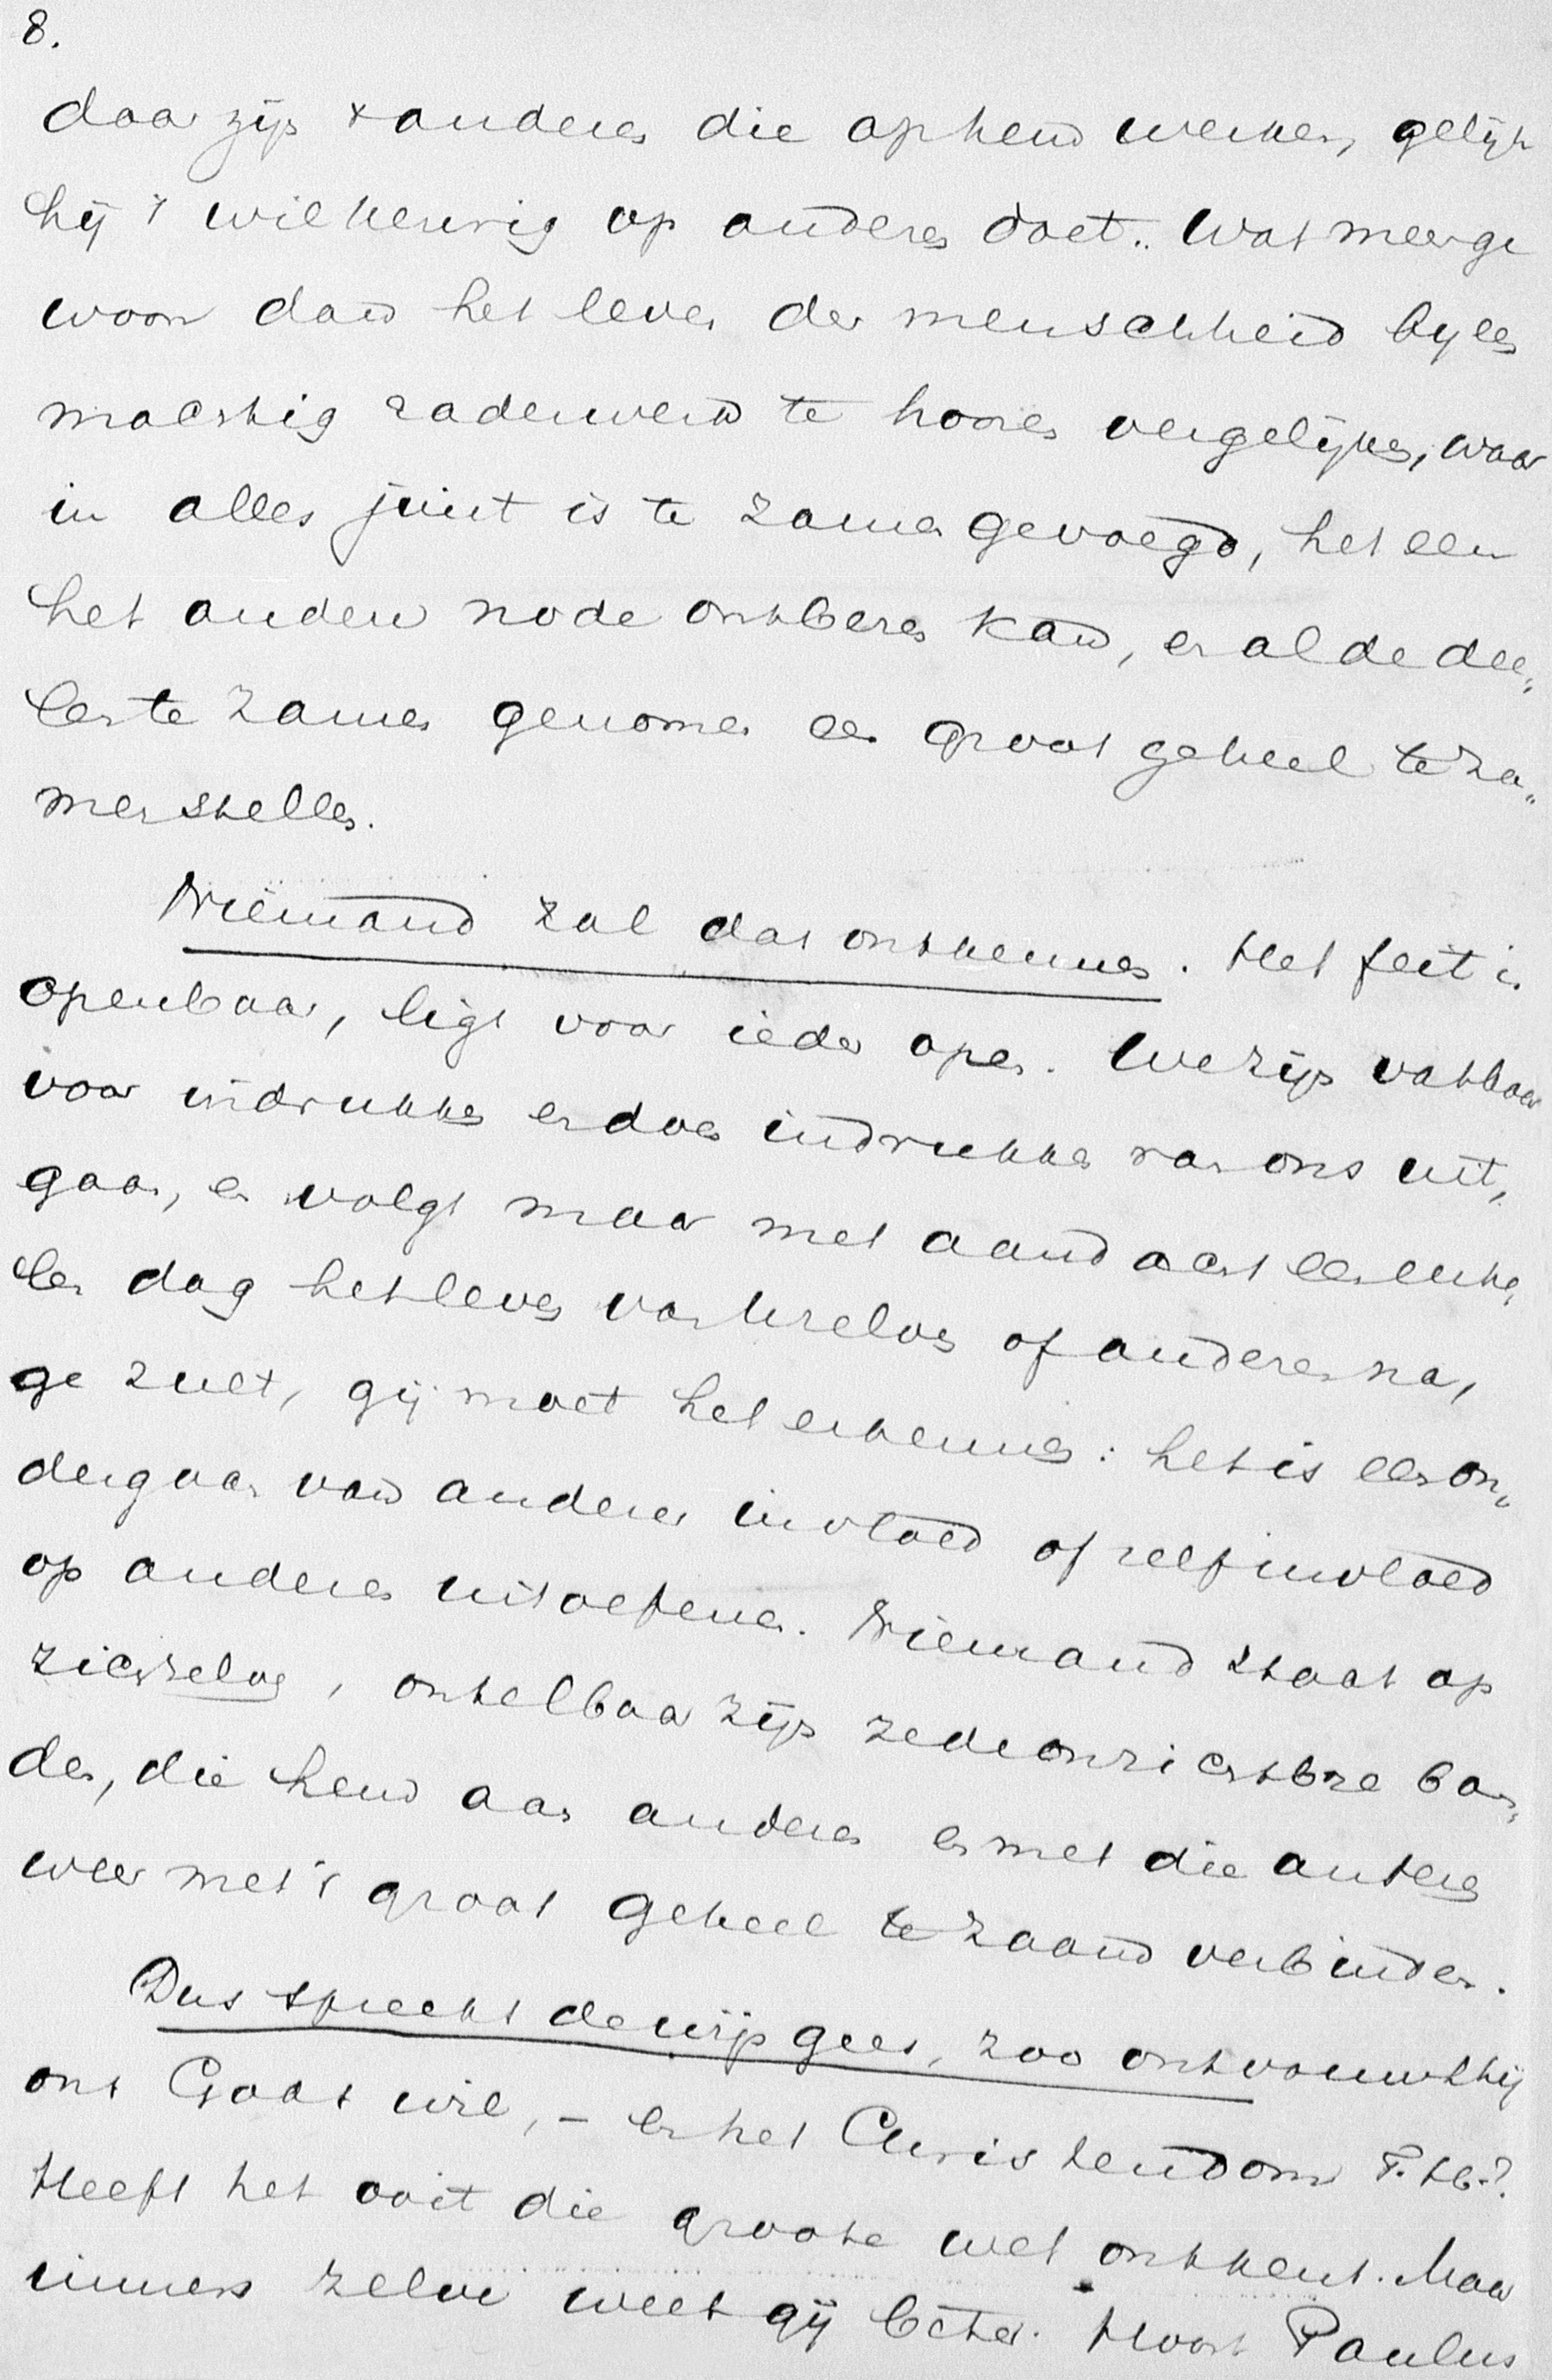 8.
daar zijn & anderen die op hem werken, gelijk
hij 't wilkeurig op anderen doet. Wat meer ge
woon dan het leven der menschheid by een
machtig raderwerk te hooren vergelijken, waar
in alles juist is te zamen gevoegd, het een
het andere node ontberen kan, en al de dee„
len te zamen genomen een groot geheel te za„
menstellen.
Niemand zal dat ontkennen. Het feit is
openbaar, ligt voor ieder open. We zijn vatbaar
voor indrukken en doen indrukken van ons uit„
gaan, en volgt maar met aandacht een enke„
len dag het leven van uzelven of anderen na,
ge zult, gij moet het erkennen: het is een on„
dergaan van anderer invloed of zelf invloed
op anderen uitoefenen. Niemand staat op
zichzelve, ontelbaar zijn zede onzichtbre ban„
den, die hem aan anderen en met die anderen
weer met 't groot geheel te zaam verbinden.
Dus spreekt de wijsgeer, zoo ontvouwt hij
ons Gods wil, – en het Christendom T. H.?
Heeft het ooit die groote wet ontkent. Maar
immers zelve weet gij beter. Hoort Paulus